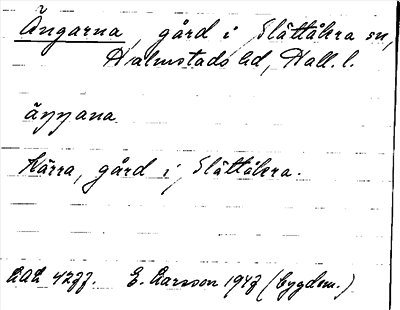 Ängarna, gård i Slättåkra sn,
Halmstads hd, Hall. l.
äŋŋana
Kärra, gård i Slättåkra.
E. Larsson 1947 (bygdem.)